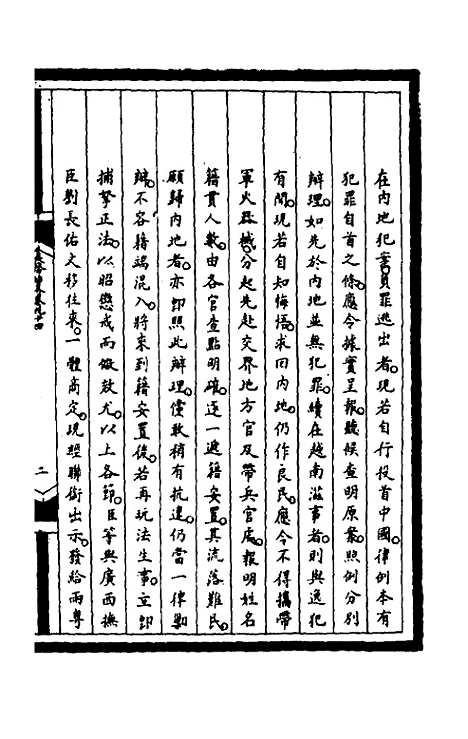 在内地犯案負罪逃出者。現若自行投首中國。律例本有
犯罪自首之條。應令據實呈報。聽候查明原案。照例分別
辦理。如先於内地並無犯罪。續在越南滋事者。則與逸犯
有間。現若自知悔悟。求回内地。仍作良民。應令不得攜帶
軍火器械。分起先赴交界地方官及帶兵官處。報明姓名
籍貫人數。由各官查點明確。逐一遞籍安置。其流落難民。
願歸内地者。亦卽照此辦理。儻敢稍有抗違。仍當一律勦
辦。不容藉端混入。將來到籍安置後。若再玩法生事。立卽
捕拏正法。以昭懲戒而儆效尤。以上各節。臣等與廣西撫
臣劉長佑文移往來。一體商定。現經聯銜出示。發給兩粵
二